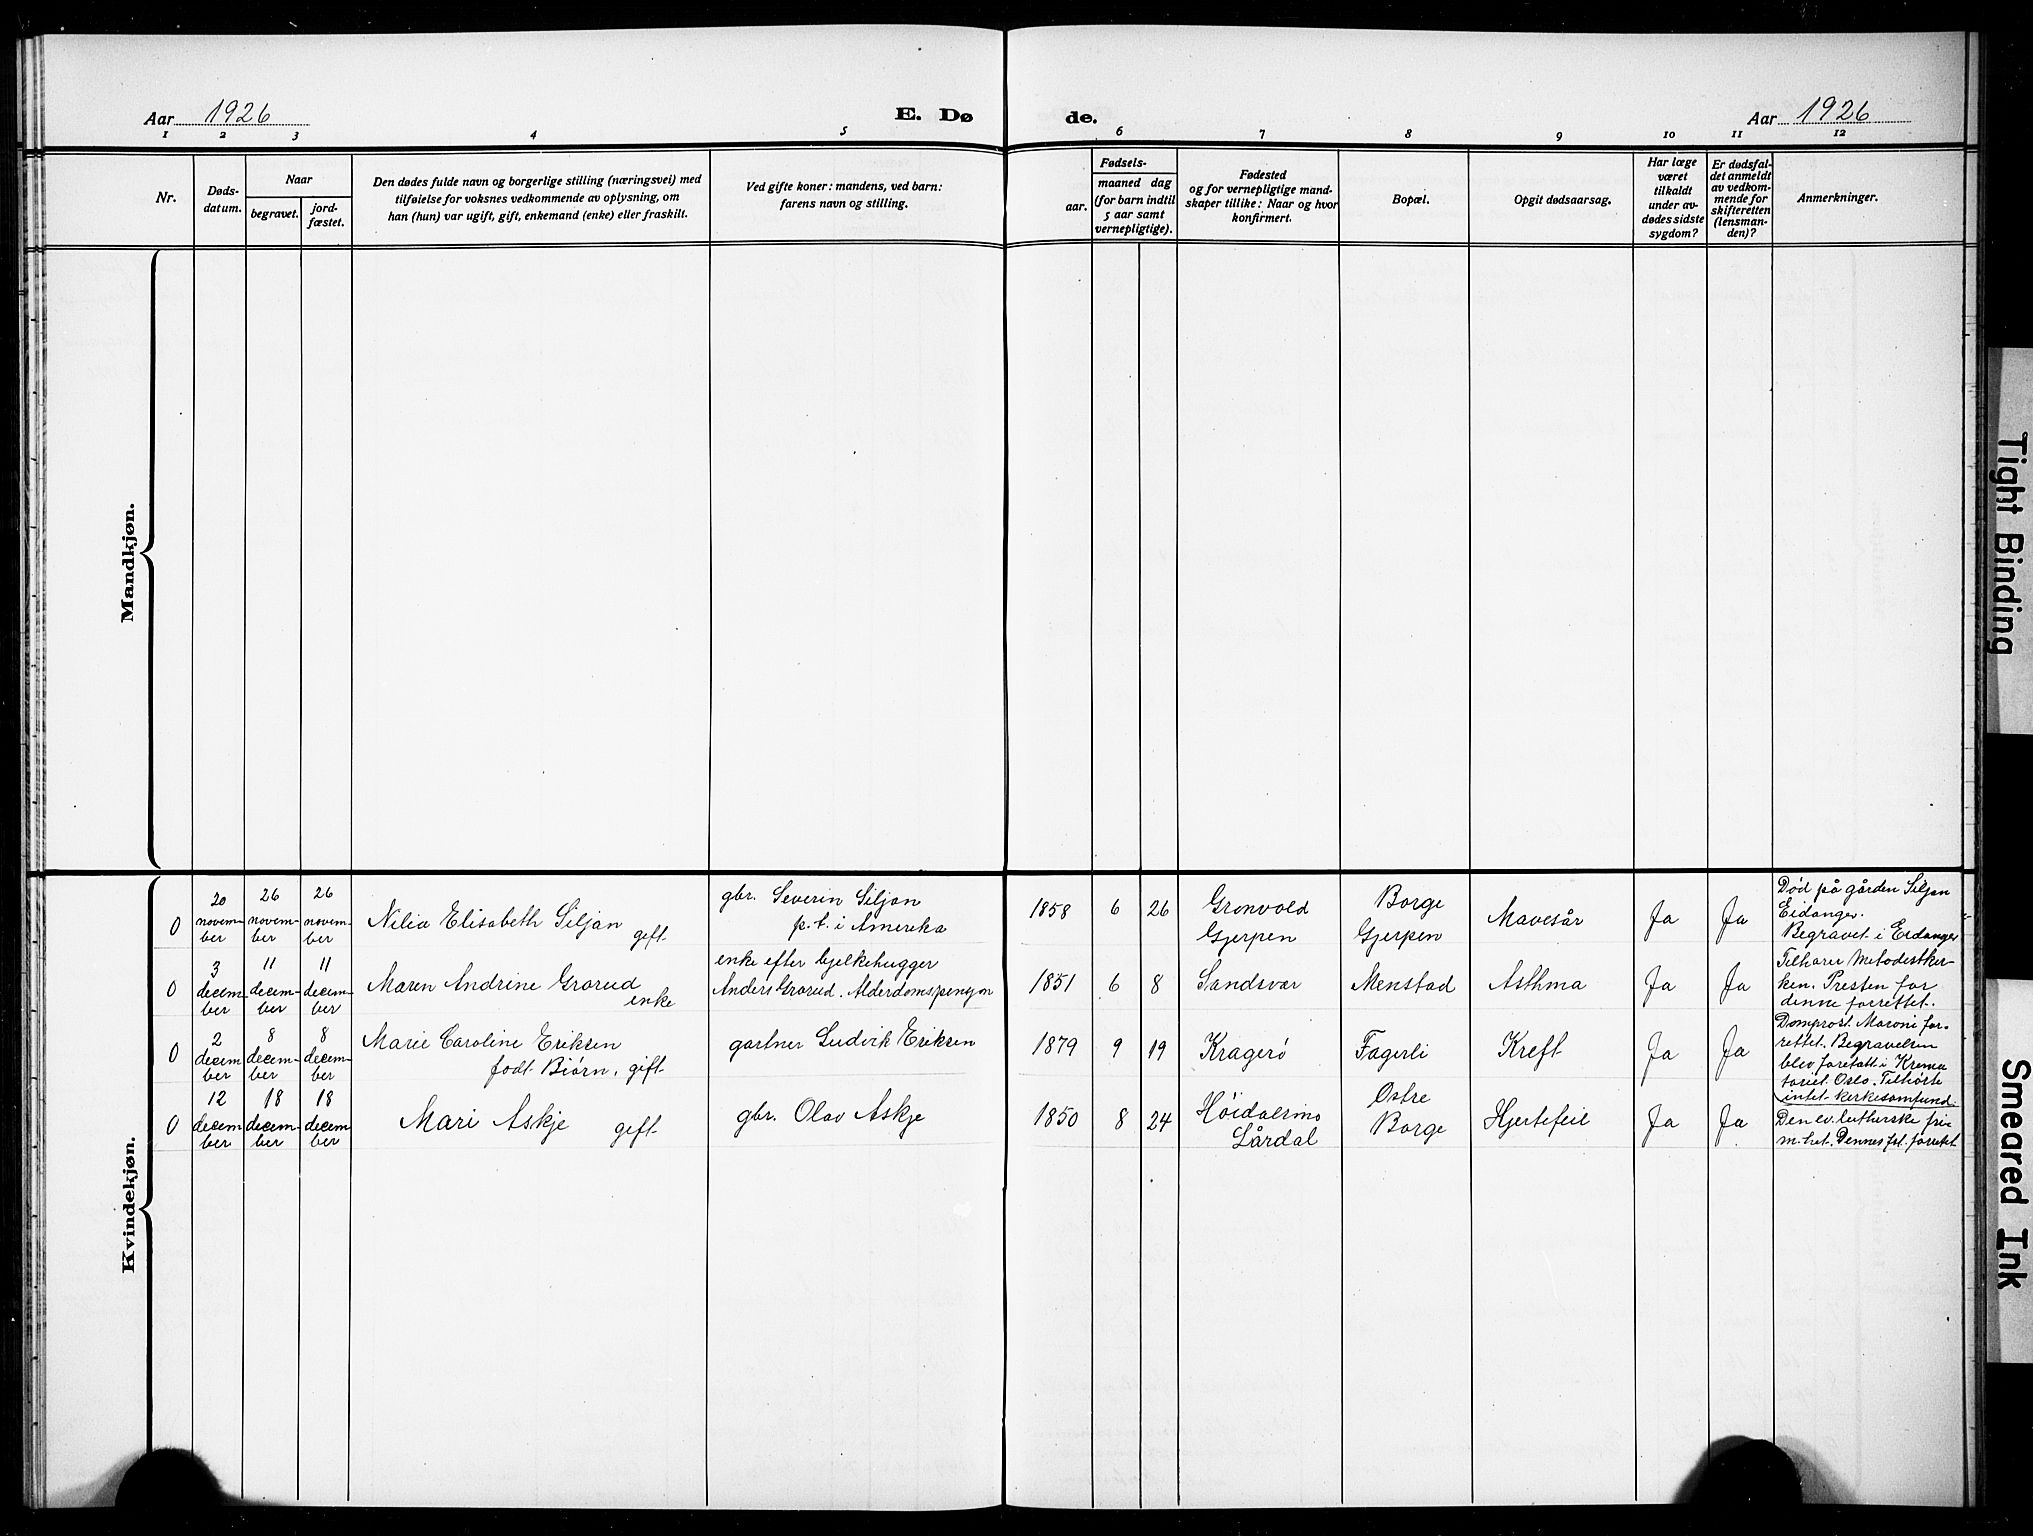 Aar 1926
E. Dø
de.
Aar 1926
1 2 3 4 5 6 7 8 9 10 11 12
Nr.
Døds-
datum.
Naar
begravet.
jord-
fæstet.
Den dødes fulde navn og borgerlige stilling (næringsvei) med
tilføielse for voksnes vedkommende av oplysning, om
han (hun) var ugift, gift, enkemand (enke) eller fraskilt.
Ved gifte koner: mandens, ved barn:
farens navn og stilling.
Fødsels-
aar.
maaned dag
(for barn indtil
5 aar samt
vernepligtige).
Fødested
og for vernepligtige mand-
skaper tillike: Naar og hvor
konfirmert.
Bopæl.
Opgit dødsaarsag.
Har læge
været
tilkaldt
under av-
dødes sidste
sygdom?
Er dødsfal-
det anmeldt
av vedkom-
mende for
skifteretten
(lensman-
den)?
Anmerkninger.
Mandkjøn.
Kvindekjøn.
0
20
novem-
ber
26
novem-
ber
26
novem-
ber
Nilia Elisabeth Siljan
gift
gbr. Severin Siljan
p.t. i Amerika
1858 6 26
Grønvold
Gjerpen
Borge
Gjerpen
Mavesår
Ja
Ja
Død på gården Siljan
Eidanger.
Begravet i Eidanger
0
3
decem-
ber
11
decem-
ber
11
decem-
ber
Maren Andrine Grorud
enke
enke efter bjelkehugger
Anders Grorud. Alderdomspensjon
1851 6 8
Sandsvær
Menstad
Asthma
Ja
Ja
Tilhører Metodestkir-
ken. Presten for
denne forrettet.
0
2
decem-
ber
8
decem-
ber
8
decem-
ber
Marie Caroline Eriksen
født Biørn, gift
gartner Ludvik Eriksen
1879 9 19
Kragerø
Fagerli
Kreft
Ja
Ja
Domprost Maroni for-
rettet. Begravelsen
blev foretatt i Krema
toriet Oslo. Tilhørte
intet kirkesamfund.
0
12
decem-
ber
18
decem-
ber
18
decem-
ber
Mari Askje
gift
gbr. Olav Askje
1850 8 24
Høidalsmo
Lårdal
Østre
Borge
Hjertefeil
Ja
Ja
Den ev. lutherske fri
m.het. Dennes fst. forrettet
Tight Binding
Smeared Ink